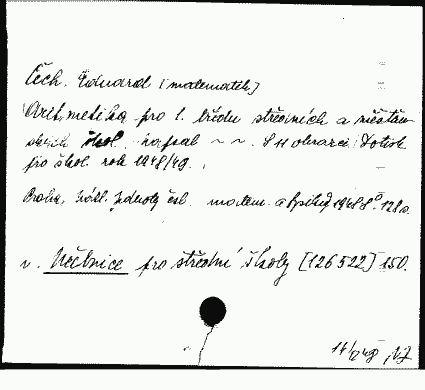 Čech. Eduard [matematik]
Aritmetika pro 1. třídu středních a měšťan
ských škol. napsal ~ ~. S 11 obrazci Dotisk
pro škol. rok 1948/49.
Praha, Jednoty čsl. matem. a 1948 8° 128 s.
v. Učebnice pro střední školy [126522] 150.